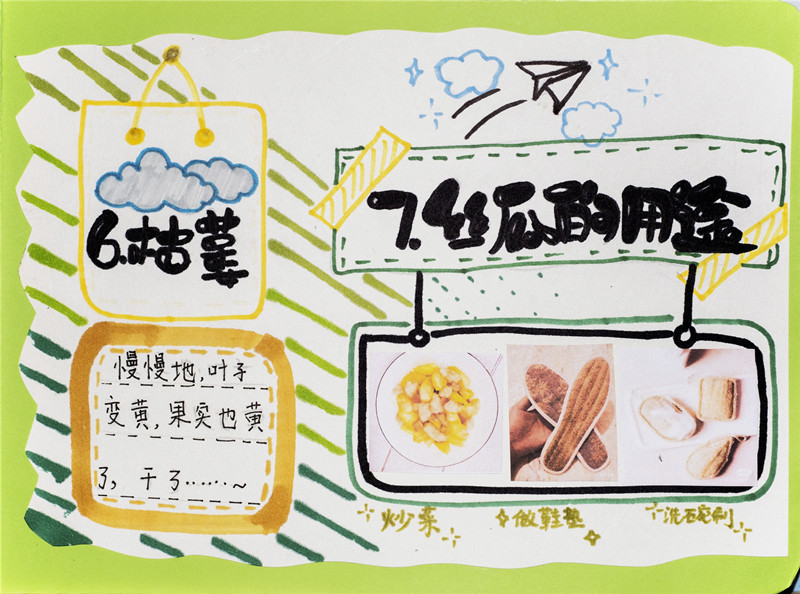 6.枯萎
慢慢地,叶子
变黄,果实也黄
了,干了……~
7.丝瓜的用途
炒菜
做鞋垫
洗碗刷